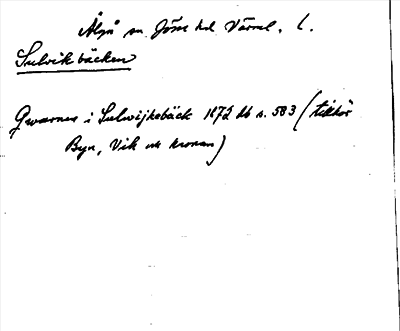 Älgå sn. Jösse hd Värml. l.
Sulvikbäcken
Qwarnen i Sulwijksbäck 1672 kb s. 583 (tillhör
Byn, Vik och kronan)